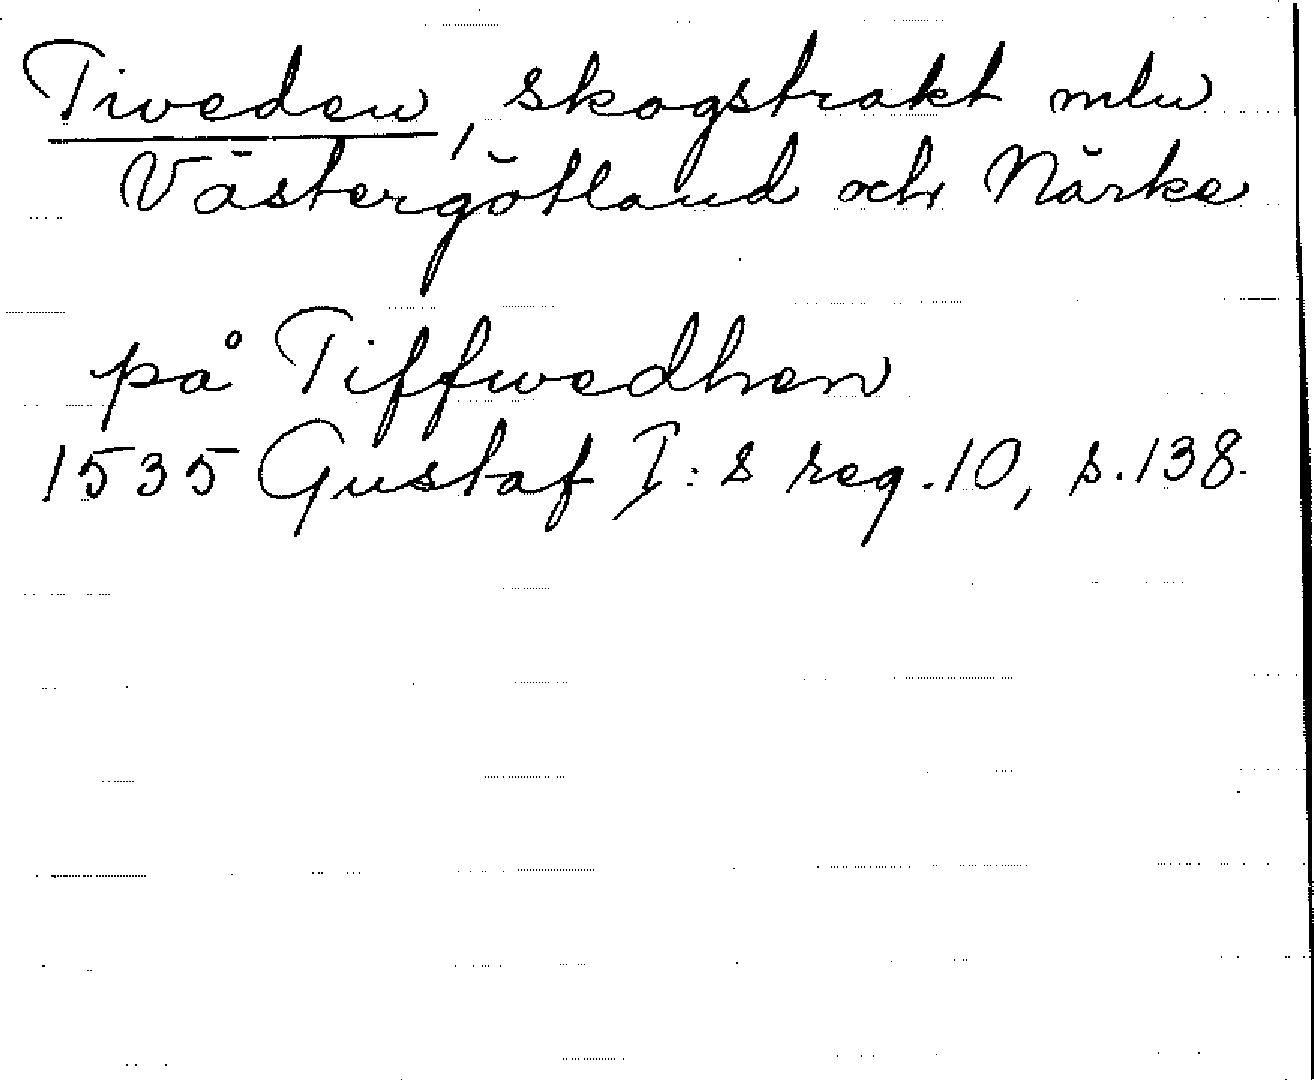 Tiveden, skogstrakt mln
Västergötland och Närke
på Tiffwedhen
1535 Gustaf I:s reg. 10, s. 138.